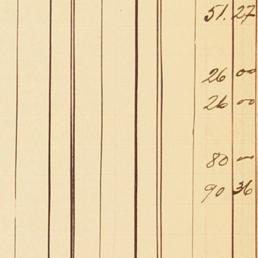 51.27
26 00
26 —
80 —
90 36